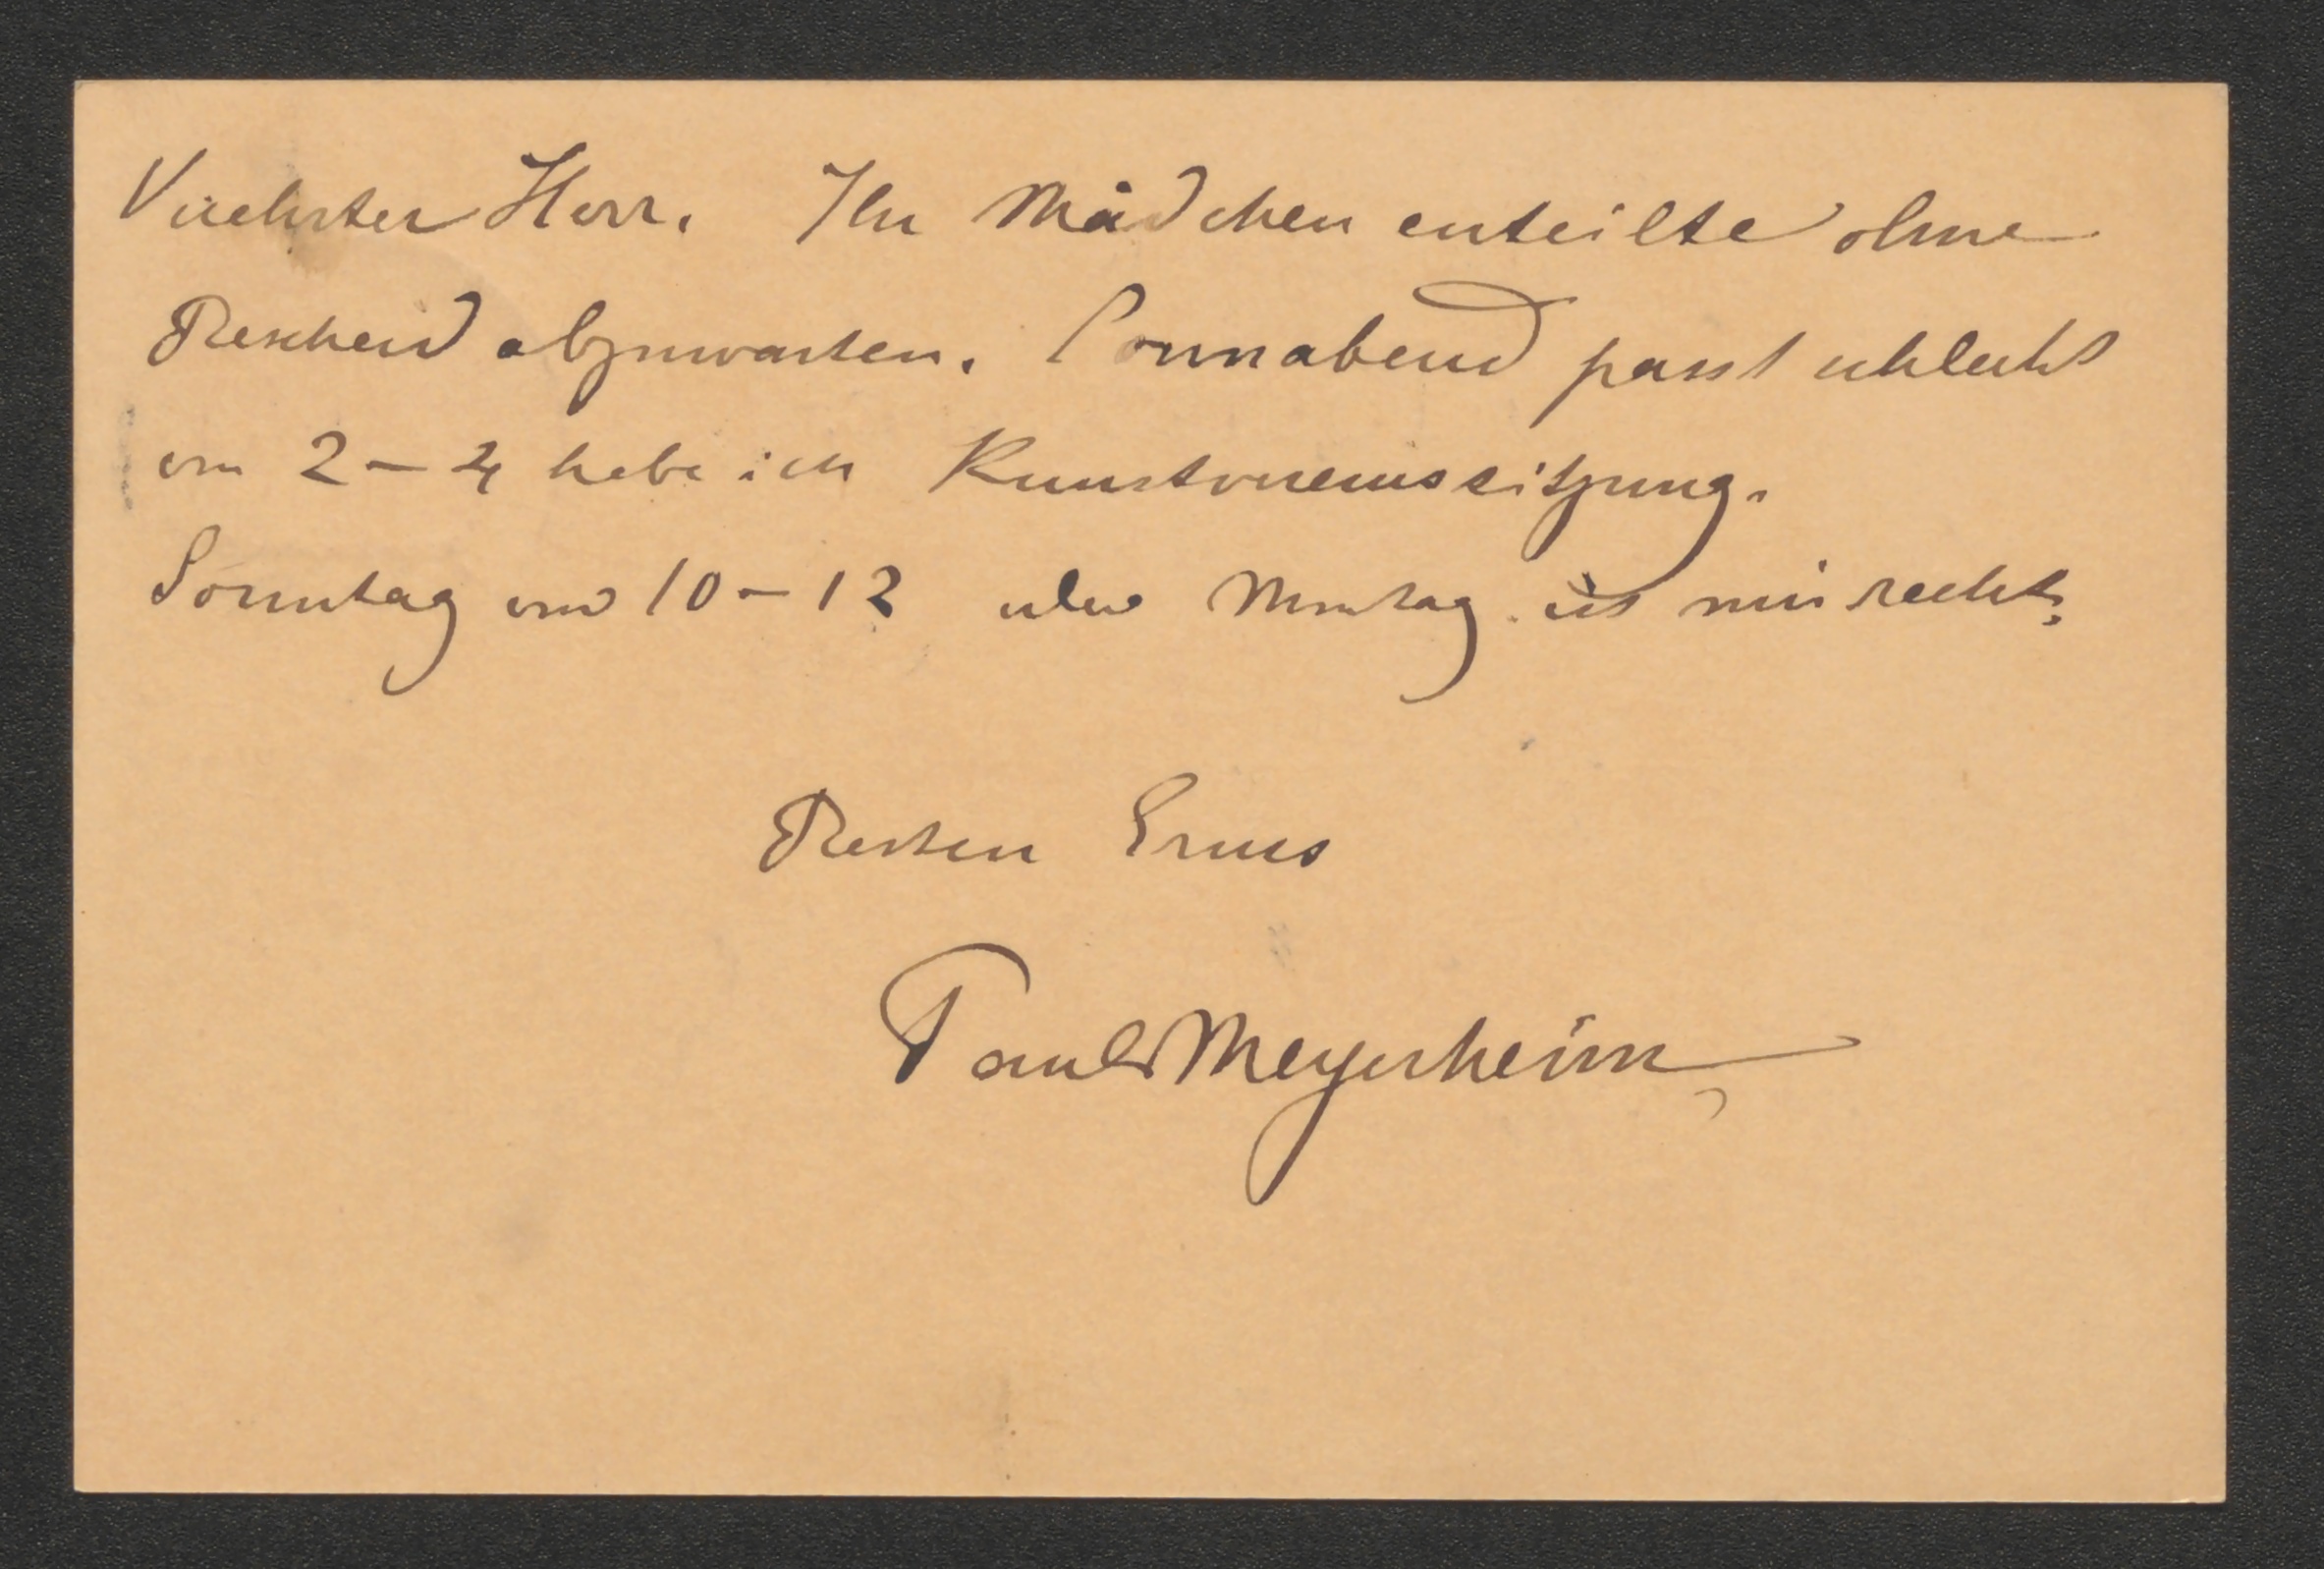 Verehrter Herr. Ihr Mädchen enteilte ohne
Bescheid abzuwarten. Sonnabend passt schlecht
von 2-4 habe ich Kunstvereinssitzung.
Sonntag von 10-12 oder Montag ist mir recht.
Besten Gruss
Paul Meyerheim